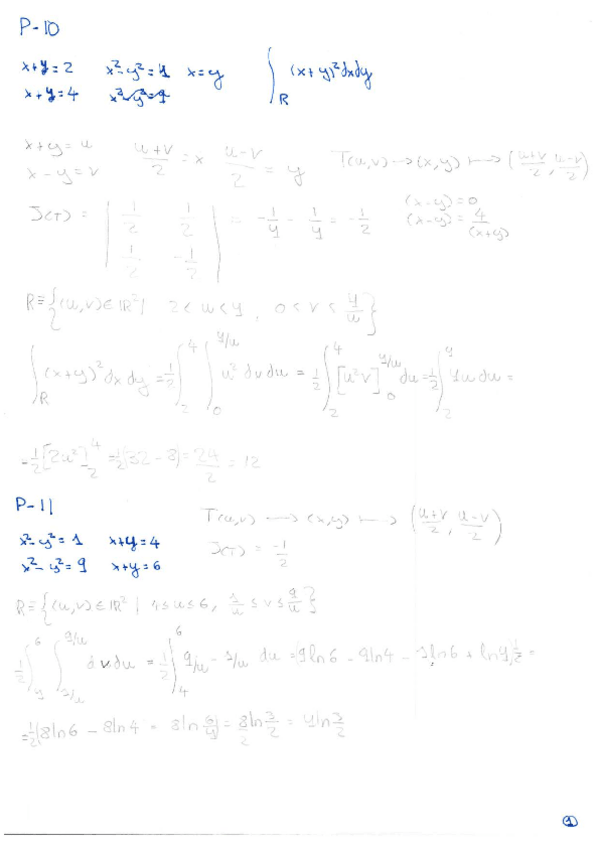 P-10
x+y=2 x²-y²=4 x=y ∫_R (x+y)²dxdy
x+y=4 x²-y²=9
x+y=u (u+v)/2 = x (u-v)/2 = y T(u,v)→(x,y)↦((u+v)/2, (u-v)/2)
x-y=v
J(T) = |1/2 1/2; 1/2 -1/2| = -1/4 - 1/4 = -1/2 (x-y)=0
(x-y)=4/(x+y)
R≡{(u,v)∈ℝ²| 2<u<4, 0<v<4/u}
∫_R (x+y)²dxdy = 1/2 ∫_2^4 ∫_0^{4/u} u² dv du = 1/2 ∫_2^4 [u²v]_0^{4/u} du = 1/2 ∫_2^4 4u du =
-1/2[2u²]_2^4 = 1/2(32-8) = 24/2 = 12
P-11
x²-y²=1 x+y=4 T(u,v)→(x,y)↦((u+v)/2, (u-v)/2)
x²-y²=9 x+y=6 J(T) = -1/2
R≡{(u,v)∈ℝ²| 4≤u≤6, 1/u≤v≤9/u}
1/2 ∫_4^6 ∫_{1/u}^{9/u} dv du = 1/2 ∫_4^6 9/u - 1/u du = (9ln6 - 9ln4 - 1ln6 + ln4)1/2 =
=1/2(8ln6 - 8ln4 = 8ln(6/4) = 8/2 ln 3/2 = 4ln 3/2
1